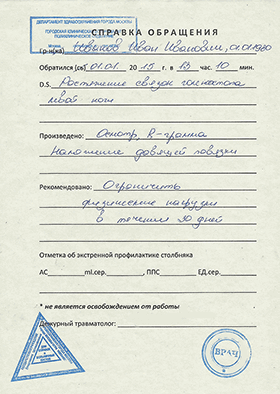 ДЕПАРТАМЕНТ ЗДРАВООХРАНЕНИЯ ГОРОДА МОСКВЫ
СПРАВКА ОБРАЩЕНИЯ
ГОРОДСКАЯ КЛИНИЧЕСКАЯ
Гр-н(ка) Иванов Иван Иванович, 01.01.1980
Обратился (сь) 01.01. 20 15 г. в 13 час. 10 мин.
D.S. Растяжение связок голеностопа
левой ноги
Произведено: Осмотр, R-грамма
Наложение давящей повязки
Рекомендовано: Ограничить
физические нагрузки
в течении 30 дней
Отметка об экстренной профилактике столбняка
АС ml.сер. , ППС ЕД.сер.
* не является освобождением от работы
Дежурный травматолог:
ВРАЧ